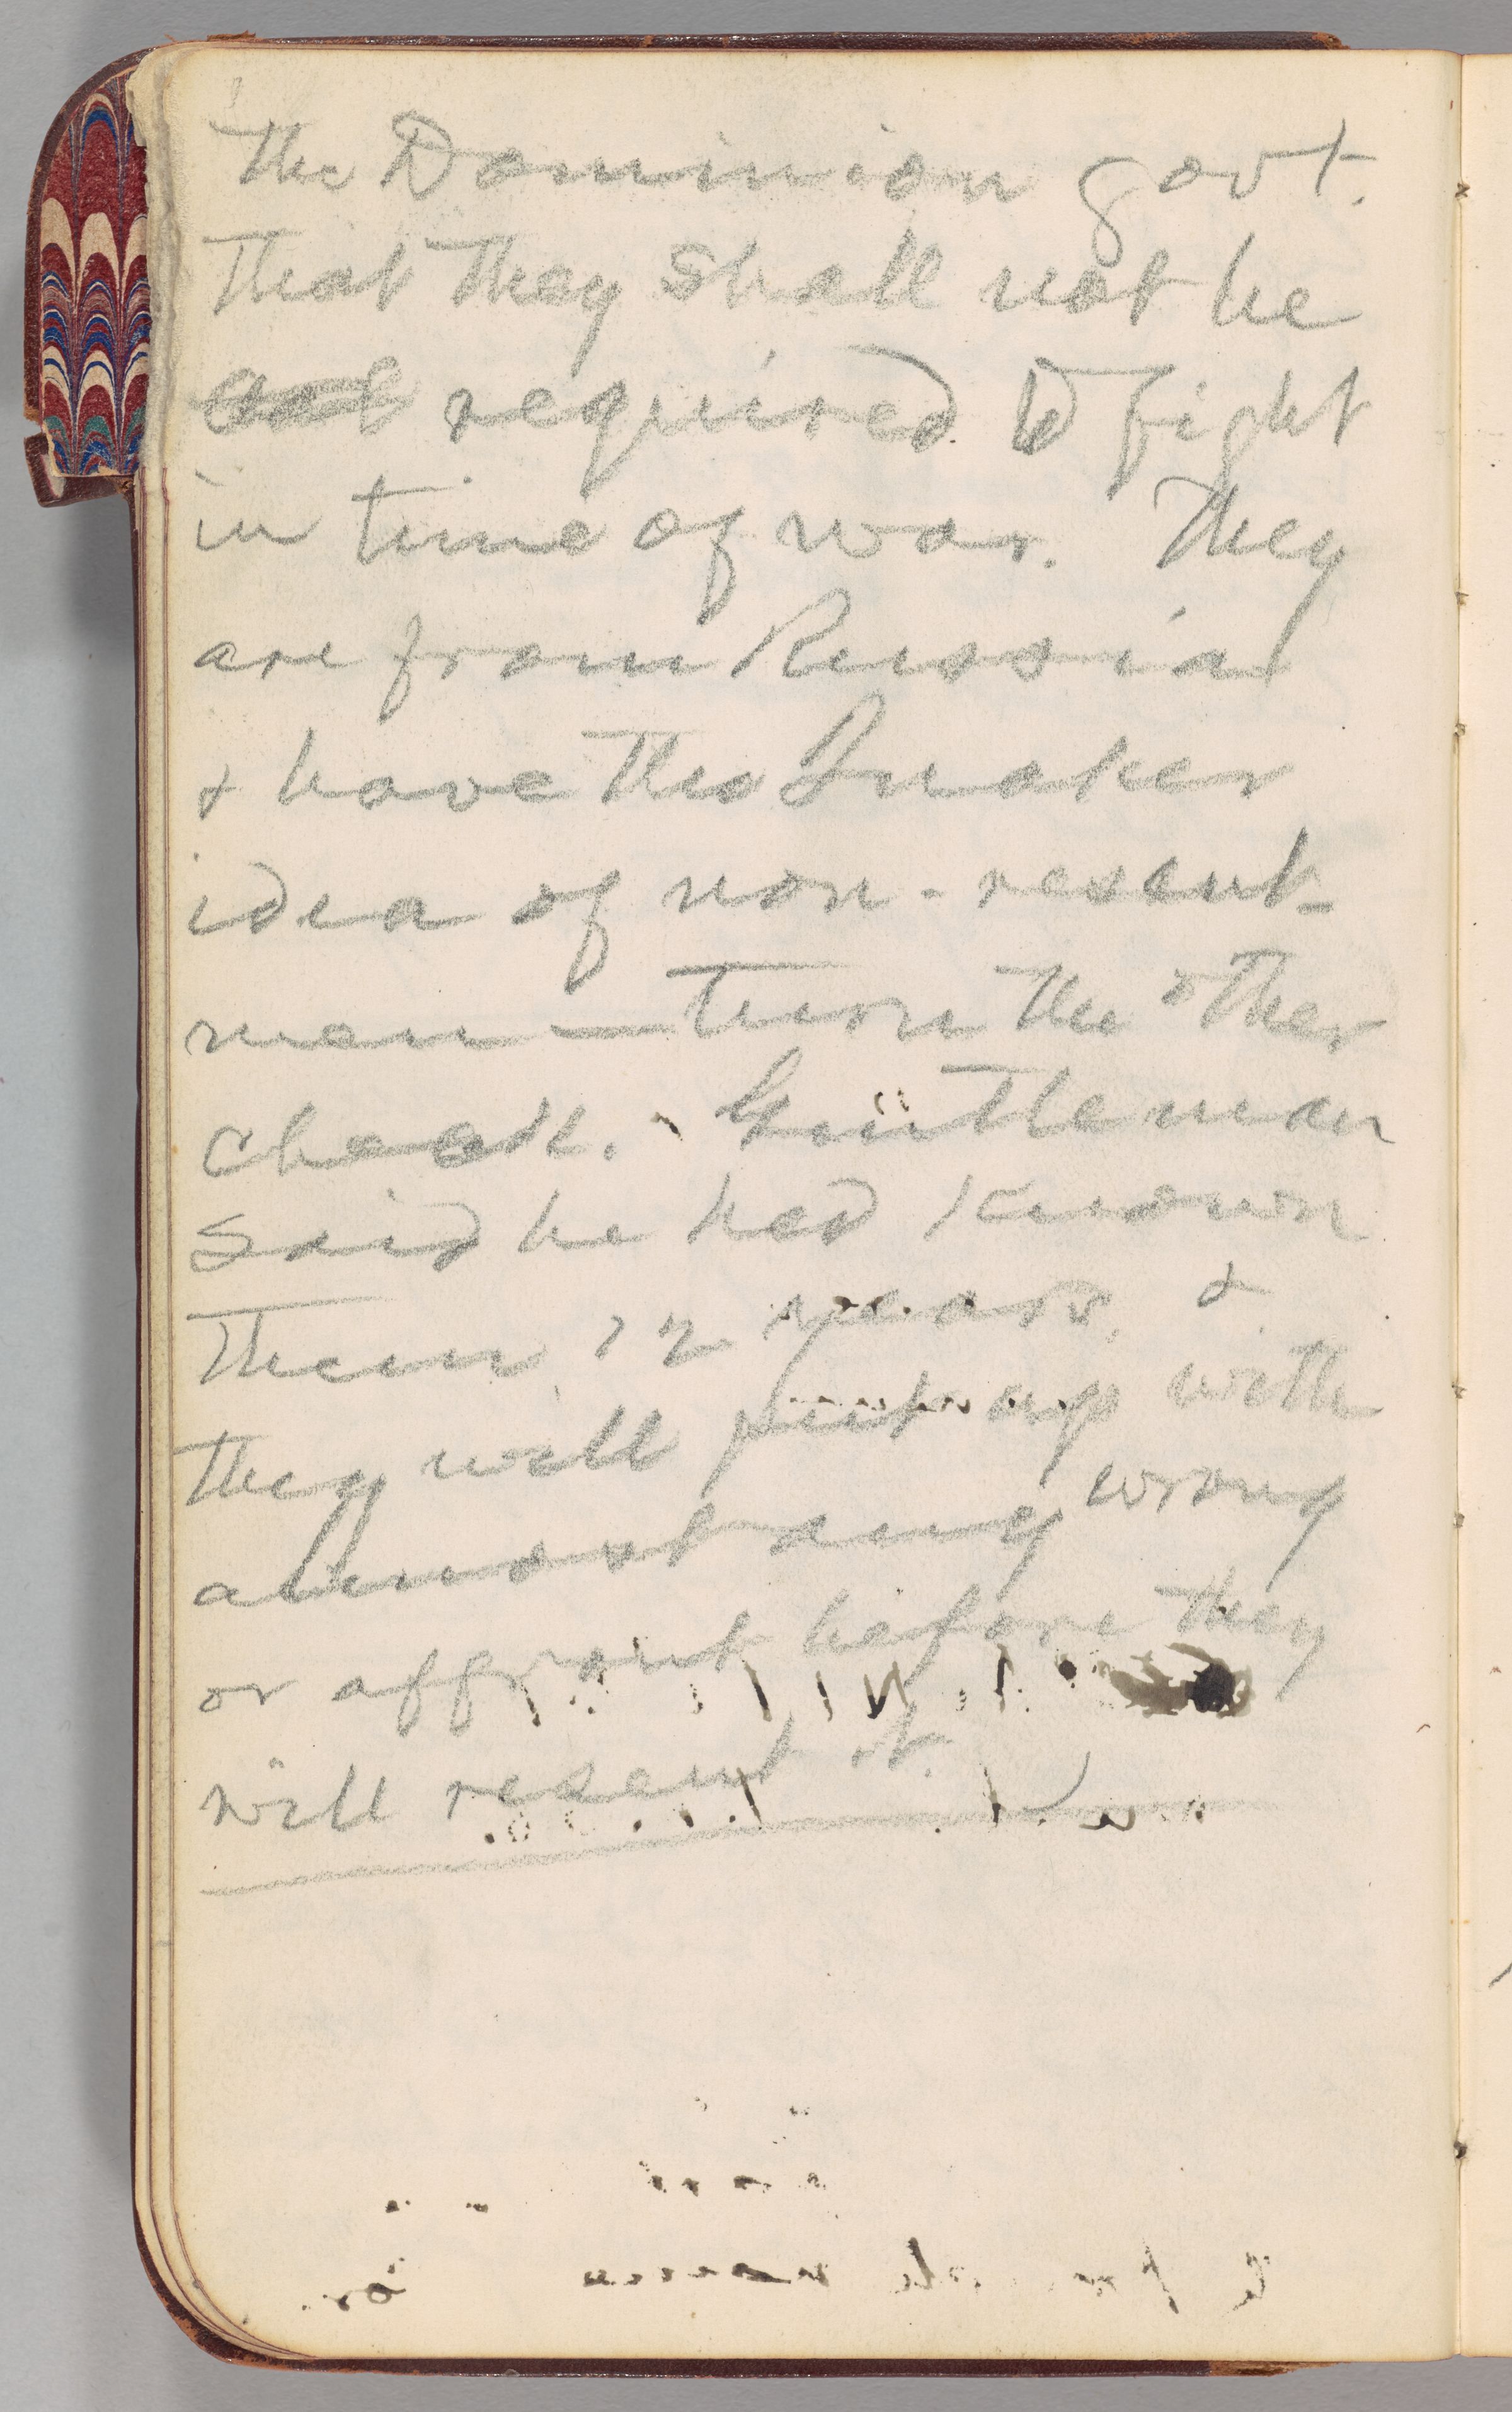 the Dominion govt.
that they shall not be
required to fight
in time of war. They
are from Russia
& have the Quaker
idea of non-resent-
men — turn the other
cheek. Gentleman
said he had known
them 12 years, &
they will put up with
almost any wrong
or affront before they
will resent it.